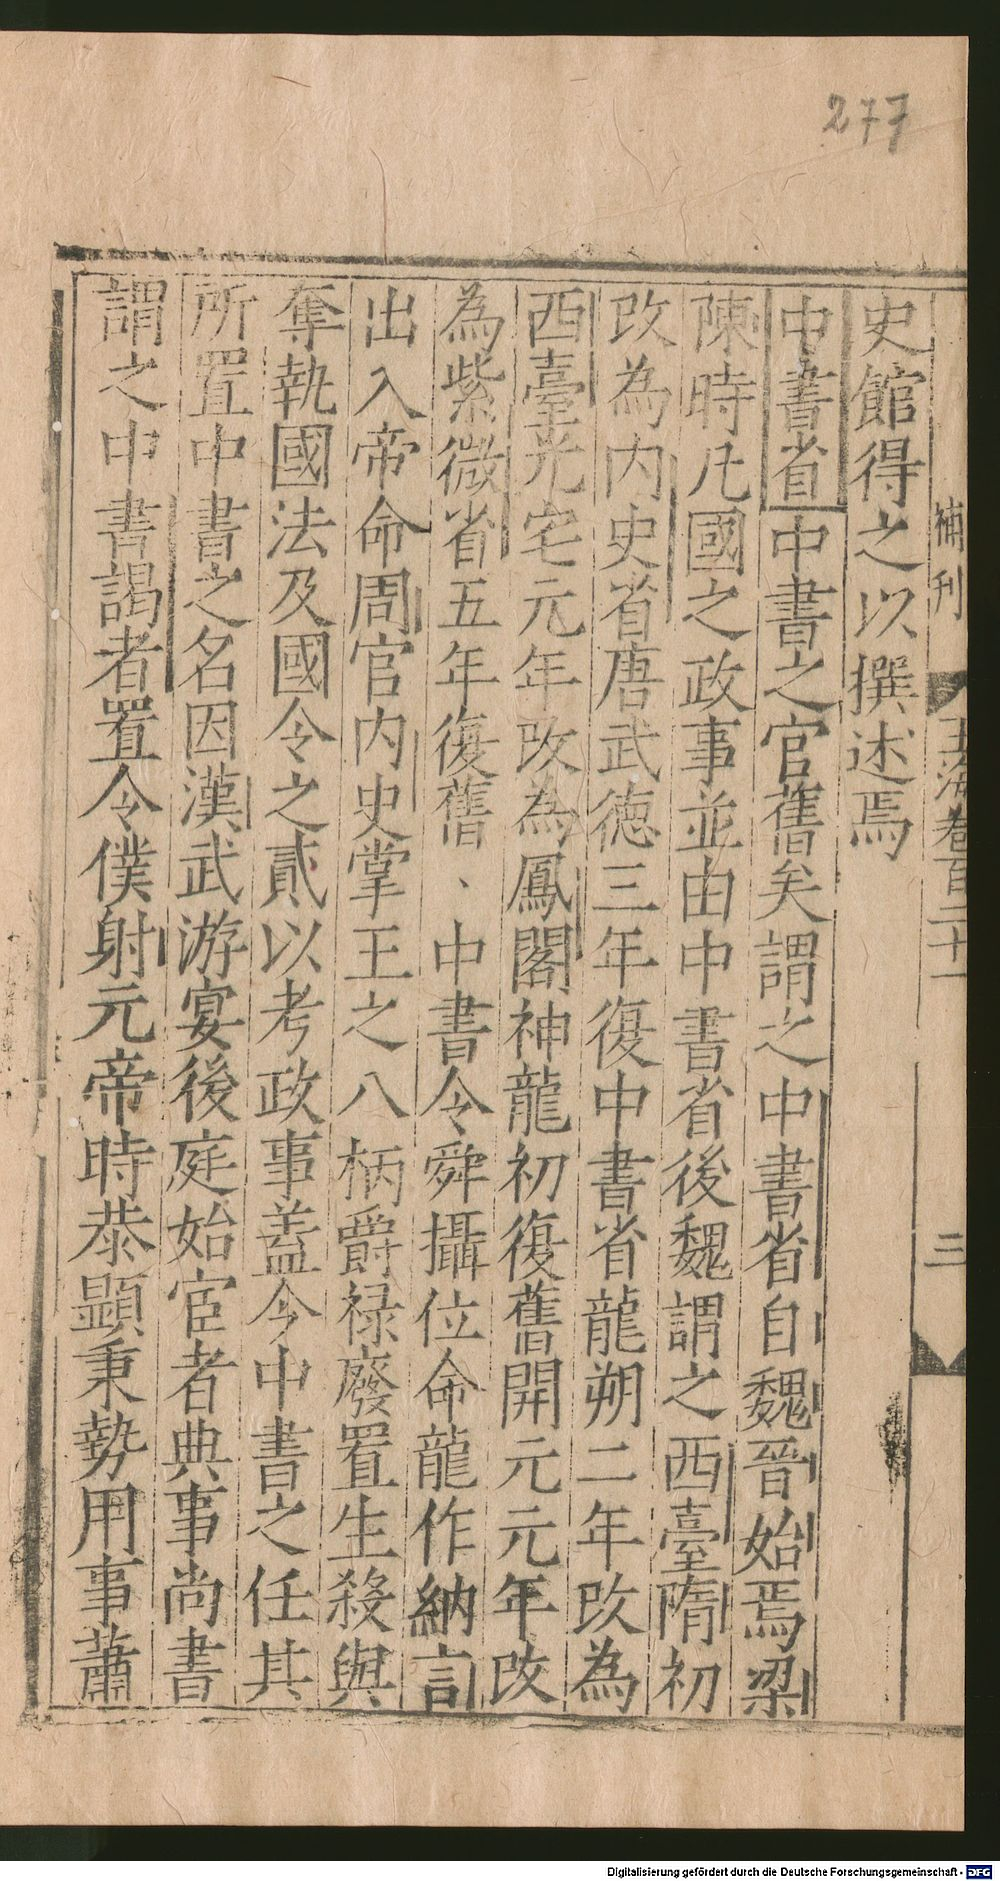 277
補刊
玉海卷百二十一
三
史館得之以撰述焉
中書省中書之官舊矣謂之中書省自魏晉始焉梁
陳時凡國之政事並由中書省後魏謂之西臺隋初
改為内史省唐武德三年復中書省龍朔二年改為
西臺光宅元年改為鳳閣神龍初復舊開元元年改
為紫微省五年復舊、中書令舜攝位命龍作納言
出入帝命周官内史掌王之八柄爵祿廢置生殺與
奪執國法及國令之貳以考政事蓋今中書之任其
所置中書之名因漢武游宴後庭始宦者典事尚書
謂之中書謁者置令僕射元帝時恭顯秉勢用事蕭
Digitalisierung gefördert durch die Deutsche Forschungsgemeinschaft - DFG